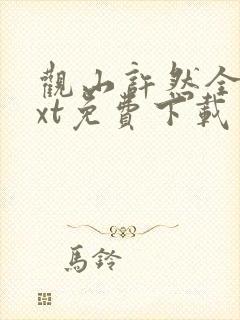 觀山許然全
xt免費下載
馬鈴